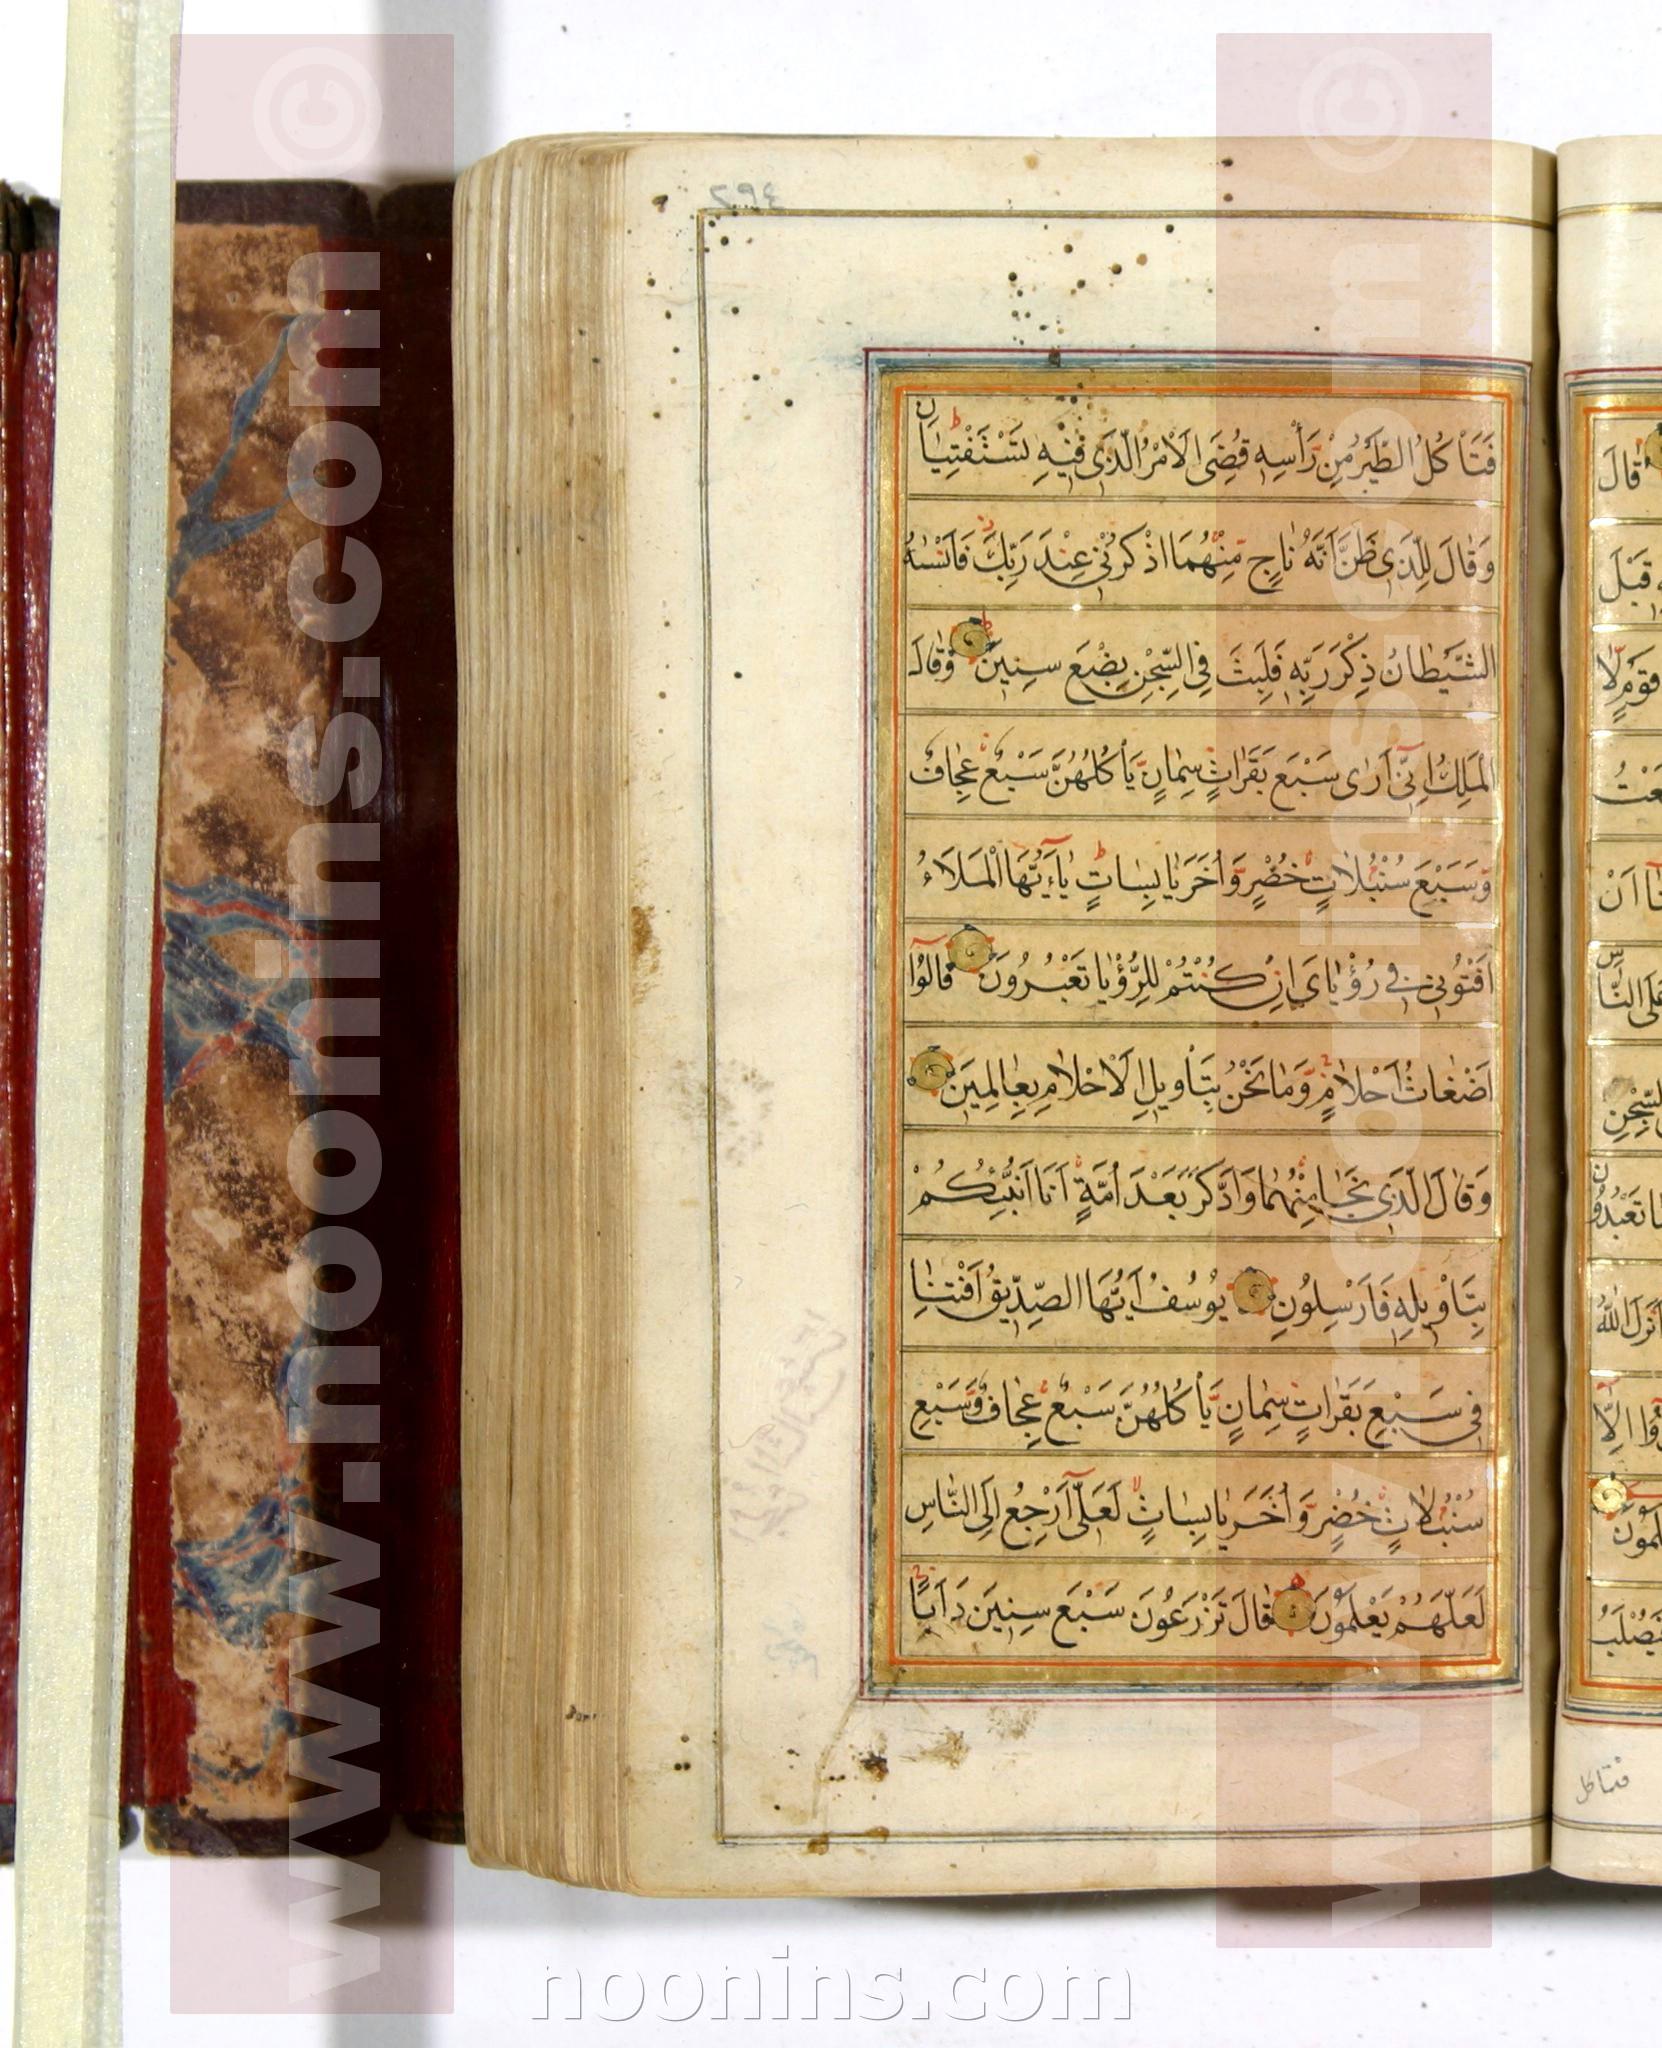 ٢٩٤
فَتَأْكُلُ الطَّيْرُ مِنْ رَأْسِهِ قُضِيَ الْأَمْرُ الَّذِي فِيهِ تَسْتَفْتِيَانِ
وَقَالَ لِلَّذِي ظَنَّ أَنَّهُ نَاجٍ مِنْهُمَا اذْكُرْنِي عِنْدَ رَبِّكَ فَأَنْسٰهُ
الشَّيْطَانُ ذِكْرَ رَبِّهِ فَلَبِثَ فِي السِّجْنِ بِضْعَ سِنِينَ وَقَالَ
الْمَلِكُ إِنِّي أَرٰى سَبْعَ بَقَرَاتٍ سِمَانٍ يَأْكُلُهُنَّ سَبْعٌ عِجَافٌ
وَسَبْعَ سُنْبُلَاتٍ خُضْرٍ وَأُخَرَ يَابِسَاتٍ يَاأَيُّهَا الْمَلَاءُ
أَفْتُونِي فِي رُؤْيَايَ إِنْ كُنْتُمْ لِلرُّؤْيَا تَعْبُرُونَ قَالُوا
أَضْغَاثُ أَحْلَامٍ وَمَا نَحْنُ بِتَأْوِيلِ الْأَحْلَامِ بِعَالِمِينَ
وَقَالَ الَّذِي نَجَا مِنْهُمَا وَادَّكَرَ بَعْدَ أُمَّةٍ أَنَا أُنَبِّئُكُمْ
بِتَأْوِيلِهِ فَأَرْسِلُونِ يُوسُفُ أَيُّهَا الصِّدِّيقُ أَفْتِنَا
فِي سَبْعِ بَقَرَاتٍ سِمَانٍ يَأْكُلُهُنَّ سَبْعٌ عِجَافٌ وَسَبْعِ
سُنْبُلَاتٍ خُضْرٍ وَأُخَرَ يَابِسَاتٍ لَعَلِّي أَرْجِعُ إِلَى النَّاسِ
لَعَلَّهُمْ يَعْلَمُونَ قَالَ تَزْرَعُونَ سَبْعَ سِنِينَ دَأَبًا
قَالَ
قَبْلَ
قَوْمٍ لَا
أَنْ
عَلَى النَّاسِ
السِّجْنِ
تَعْبُدُونَ
أَنْزَلَ اللَّهُ
إِلَّا
فتاكل
www.noonins.com ©
www.noonins.com ©
noonins.com